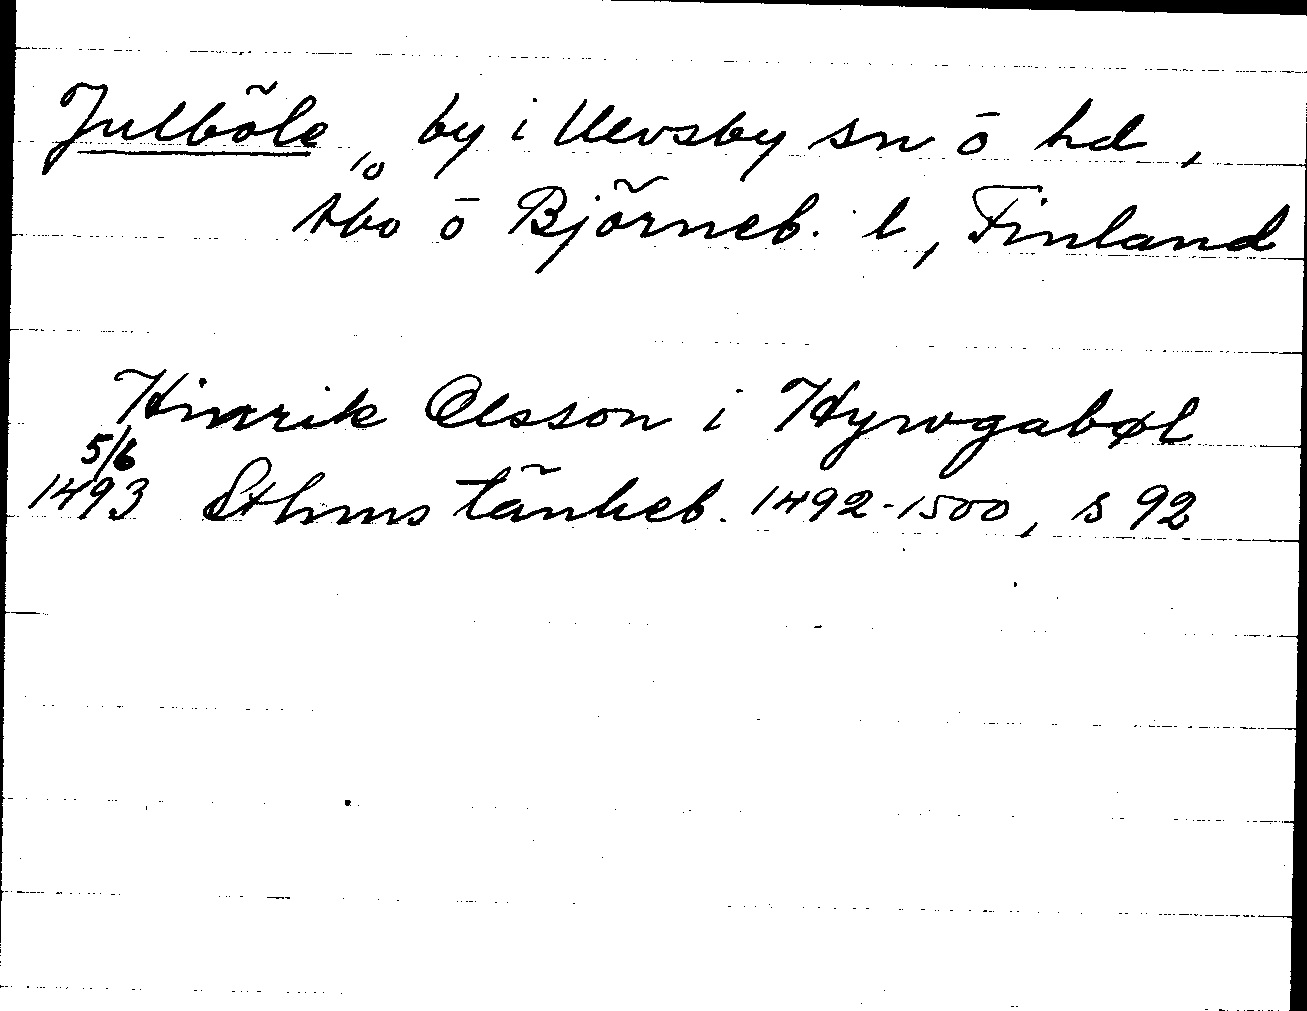 Julböle, by i Ulvsby sn o hd,
Åbo o Björneb. l, Finland
Hinrik Olsson i Hyrvogabøl
5/6
1493 Sthms tänkeb. 1492-1500, s 92